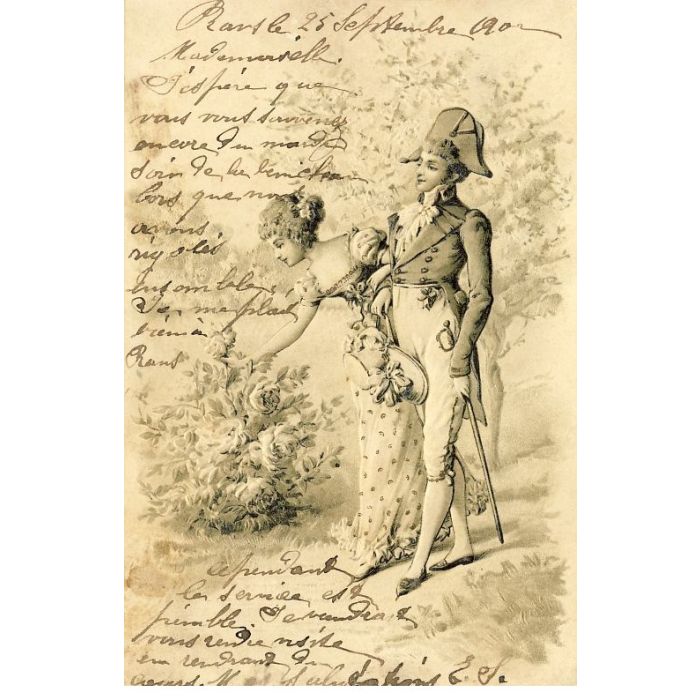 Rans le 25 Septembre 190
Mademoiselle.
J'espère que
vous vous souvenez
encore du mardi
soir de la
lors que nous
avons
rigolés
ensembles,
Je me plait
bien à
Rans
cependant
le service est
pénible. Je voudrait
vous rendre visite
en rendrant du
M et Salutations E. S.